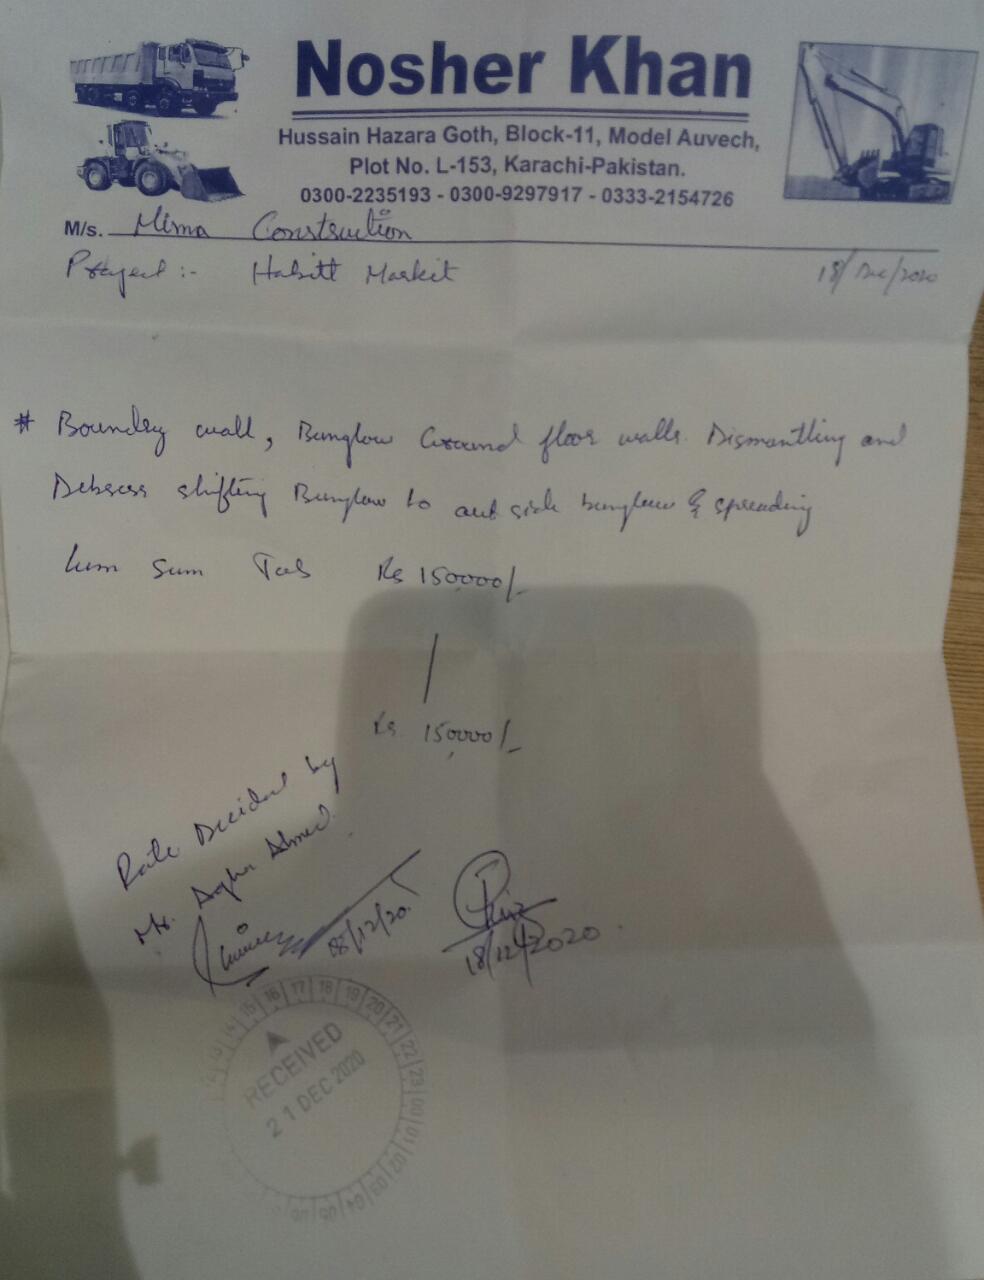 Nosher Khan
Hussain Hazara Goth, Block-11, Model Auvech,
Plot No. L-153, Karachi-Pakistan.
0300-2235193 - 0300-9297917 - 0333-2154726
M/s. Construction
Project :- Habitt Markit
18/Dec/2020
# Boundry wall, Bunglow Ground floor walls Dismantling and
shifting Bunglow to out side bunglow & spreading
lum sum Rs 150000/-
Rs. 150000/-
Rate Decided by
Mr. Agha Ahmed.
18/12/20.
18/12/2020.
14 15 16 17 18 19 20 21 22 23 00 01 02 03 04 05 06
RECEIVED
21 DEC 2020